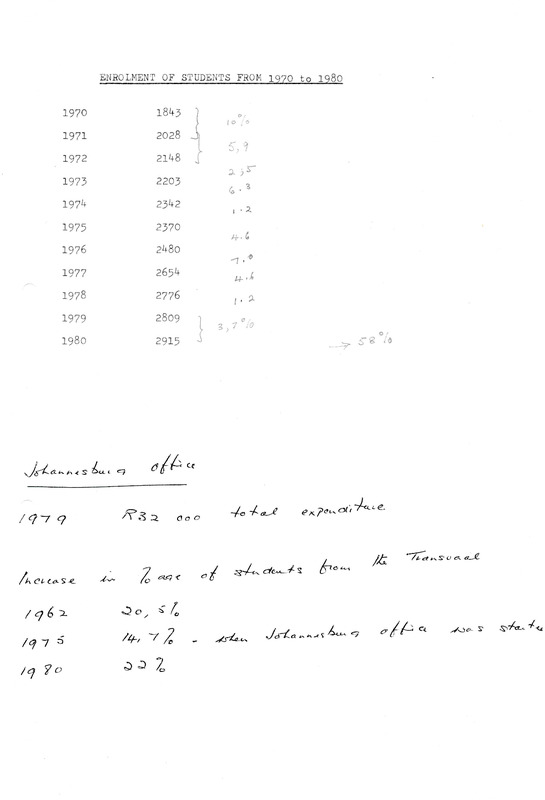 ENROLMENT OF STUDENTS FROM 1970 to 1980
1970 1843
10%
1971 2028
5,9
1972 2148
2,5
1973 2203
6.3
1974 2342
1.2
1975 2370
4.6
1976 2480
7.0
1977 2654
4.6
1978 2776
1.2
1979 2809
3,7%
1980 2915
→ 58%
Johannesburg office
1979 R32 000 total expenditure
Increase in %age of students from the Transvaal
1962 20,5%
1975 14,7% - when Johannesburg office was starte
1980 22%